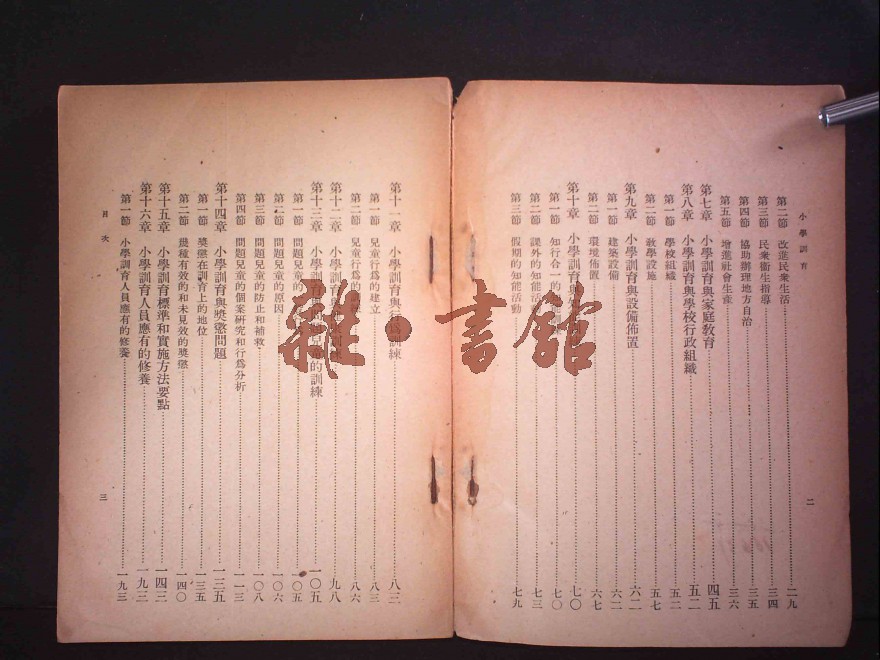 小學訓育
第二節 改進民衆生活 二九
第三節 民衆衞生指導 三四
第四節 協助辦理地方自治 三五
第五節 增進社會生產 三六
第七章 小學訓育與家庭教育 四五
第八章 小學訓育與學校行政組織 五二
第一節 學校組織 五二
第二節 敎學設施 五七
第九章 小學訓育與設備佈置 六二
第一節 建築設備 六二
第二節 環境佈置 六七
第十章 小學訓育與 七〇
第一節 知行合一的 七〇
第二節 課外的知能活動 七三
第三節 假期的知能活動 七九
二
第十一章 小學訓育與行爲訓練 八三
第一節 兒童行爲的建立 八三
第二節 兒童行爲的 八六
第十二章 小學訓育與 九八
第十三章 小學訓育 兒童的訓練 一〇五
第一節 問題兒童的 一〇五
第二節 問題兒童的原因 一〇六
第三節 問題兒童的防止和補救 一〇八
第四節 問題兒童的個案研究和行爲分析 一一三
第十四章 小學訓育與獎懲問題 一三五
第一節 獎懲在訓育上的地位 一三五
第二節 幾種有效的和未見效的獎懲 一四〇
第十五章 小學訓育標準和實施方法要點 一四三
第十六章 小學訓育人員應有的修養 一九三
第一節 小學訓育人員應有的修養 一九三
目次
三
雜·書館